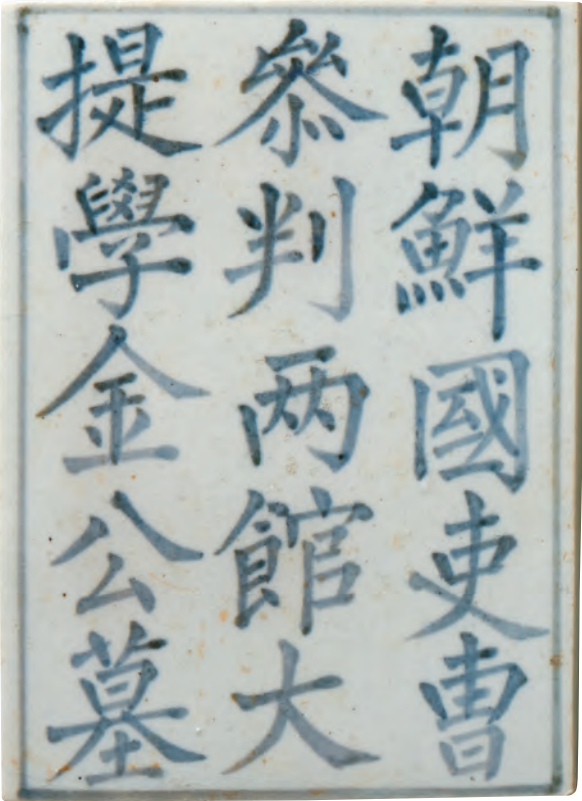 朝鮮國吏曺
叅判两館大
提學金公墓